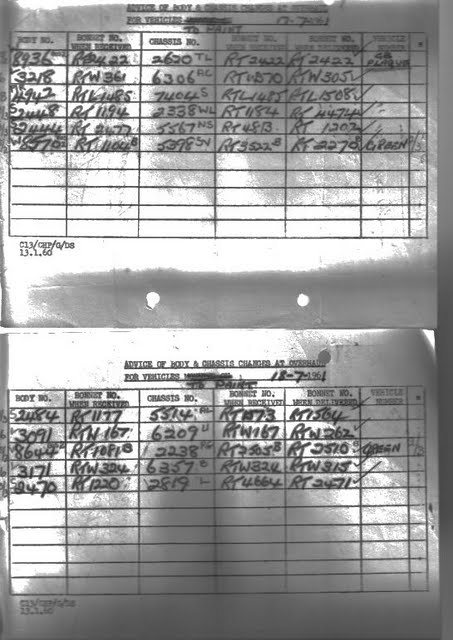 ADVICE OF BODY & CHASSIS CHANGES AT OVERHAUL
FOR VEHICLES 17-7-1961
TO PAINT
BODY NO. BONNET NO. WHEN RECEIVED CHASSIS NO. BONNET NO. WHEN RECEIVED BONNET NO. WHEN DELIVERED VEHICLE NUMBER
8936 RT2422 2620 TL RT2422 RT2422 GB PLAQUE
3218 RTW361 6306 RTW305
4942 RTL1485 7404 S RTL1485 RTL1508
2448 RT1194 2338 WL RT1184 RT4474
2444 RT2477 5567 NS RT4813 RT1202
8570 RT1104 B 5398 SN RT3522 B RT2270 B GREEN
C13/CHP/G/DS
13.1.60
ADVICE OF BODY & CHASSIS CHANGES AT OVERHAUL
FOR VEHICLES : 18-7-1961
TO PAINT
BODY NO. BONNET NO. WHEN RECEIVED CHASSIS NO. BONNET NO. WHEN RECEIVED BONNET NO. WHEN DELIVERED VEHICLE NUMBER
2484 RT1177 5514 RT1564
3091 RTW167 6209 RTW167 RTW262
8644 2238 RT2505 B RT2510 B GREEN
3171 RTW324 6357 B RTW324 RTW315
2470 RT1220 2819 L RT4664 RT2471
C13/CHP/G/DS
13.1.60